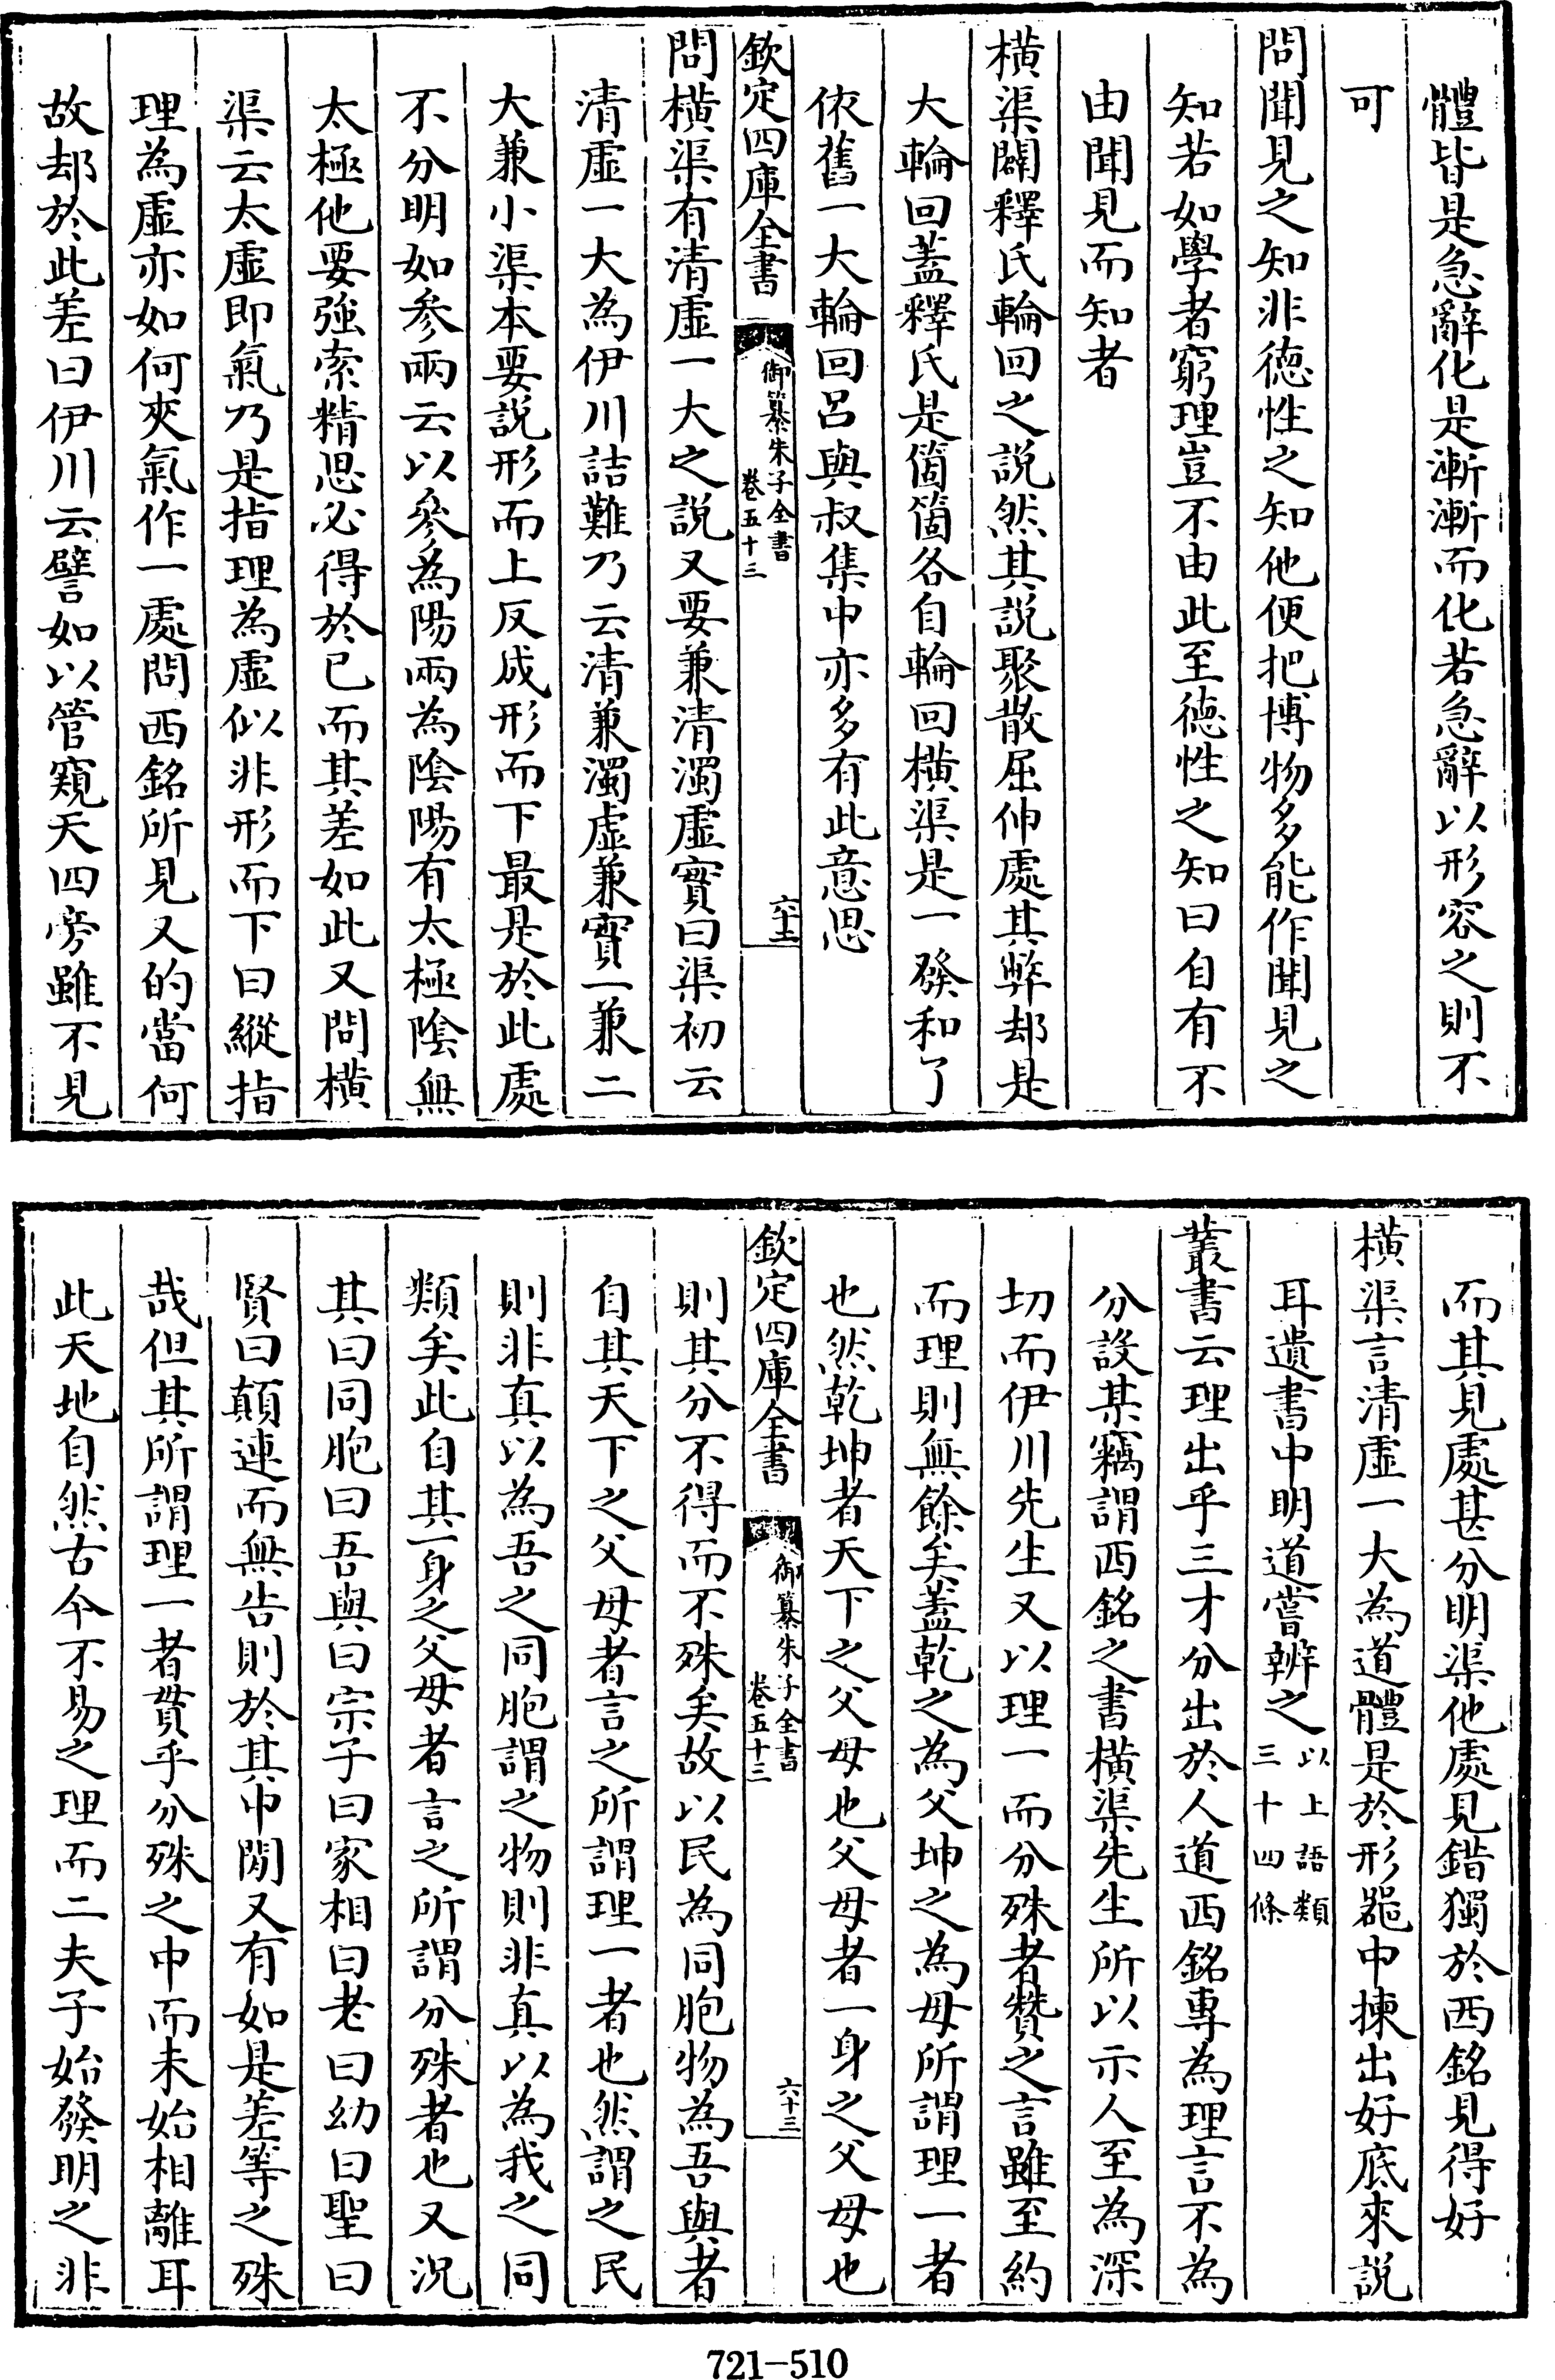 體皆是急辭化是漸漸而化若急辭以形容之則不
可
問聞見之知非德性之知他便把博物多能作聞見之
知若如學者窮理豈不由此至德性之知曰自有不
由聞見而知者
橫渠闢釋氏輪回之説然其説聚散屈伸處其弊却是
大輪回蓋釋氏是箇箇各自輪回橫渠是一發和了
依舊一大輪回呂與叔集中亦多有此意思
欽定四庫全書
御纂朱子全書
卷五十三
六十二
問橫渠有清虛一大之説又要兼清濁虛實曰渠初云
清虛一大為伊川詰難乃云清兼濁虛兼實一兼二
大兼小渠本要説形而上反成形而下最是於此處
不分明如參兩云以參為陽兩為陰陽有太極陰無
太極他要強索精思必得於己而其差如此又問橫
渠云太虛即氣乃是指理為虛似非形而下曰縱指
理為虛亦如何夾氣作一處問西銘所見又的當何
故却於此差曰伊川云譬如以管窺天四旁雖不見
而其見處甚分明渠他處見錯獨於西銘見得好
橫渠言清虛一大為道體是於形器中揀出好底來説
耳遺書中明道嘗辨之以上語類三十四條
叢書云理出乎三才分出於人道西銘專為理言不為
分設某竊謂西銘之書橫渠先生所以示人至為深
切而伊川先生又以理一而分殊者贊之言雖至約
而理則無餘矣蓋乾之為父坤之為母所謂理一者
也然乾坤者天下之父母也父母者一身之父母也
欽定四庫全書
御纂朱子全書
卷五十三
六十三
則其分不得而不殊矣故以民為同胞物為吾與者
自其天下之父母者言之所謂理一者也然謂之民
則非真以為吾之同胞謂之物則非真以為我之同
類矣此自其一身之父母者言之所謂分殊者也又況
其曰同胞曰吾與曰宗子曰家相曰老曰幼曰聖曰
賢曰顛連而無告則於其中閒又有如是差等之殊
哉但其所謂理一者貫乎分殊之中而未始相離耳
此天地自然古今不易之理而二夫子始發明之非
721-510